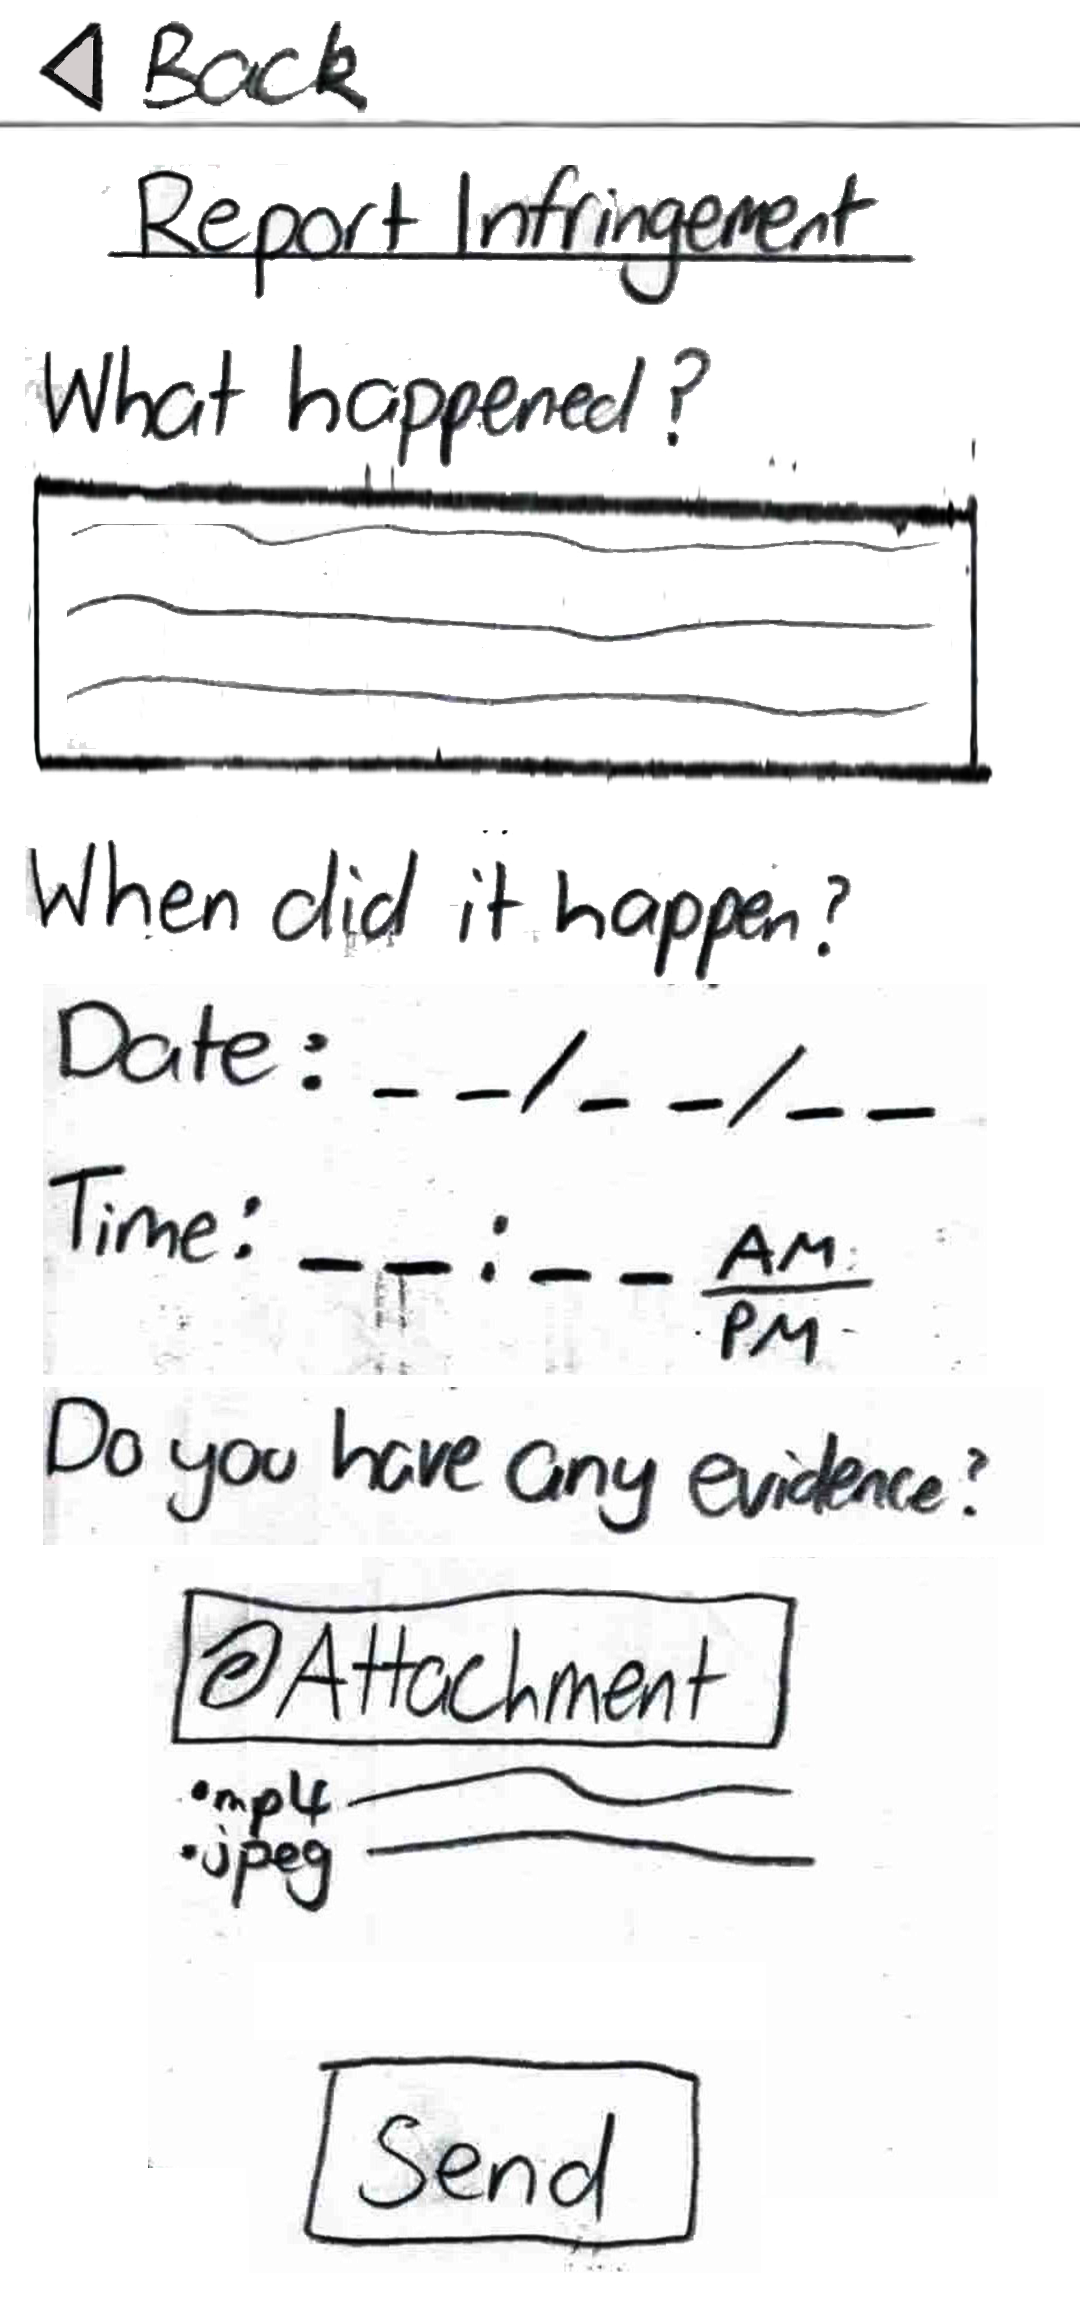 Back
Report Infringement
What happened?
When did it happen?
Date: _ _/_ _/_ _
Time: _ _:_ _ AM
PM
Do you have any evidence?
Attachment
.mp4
.jpeg
Send